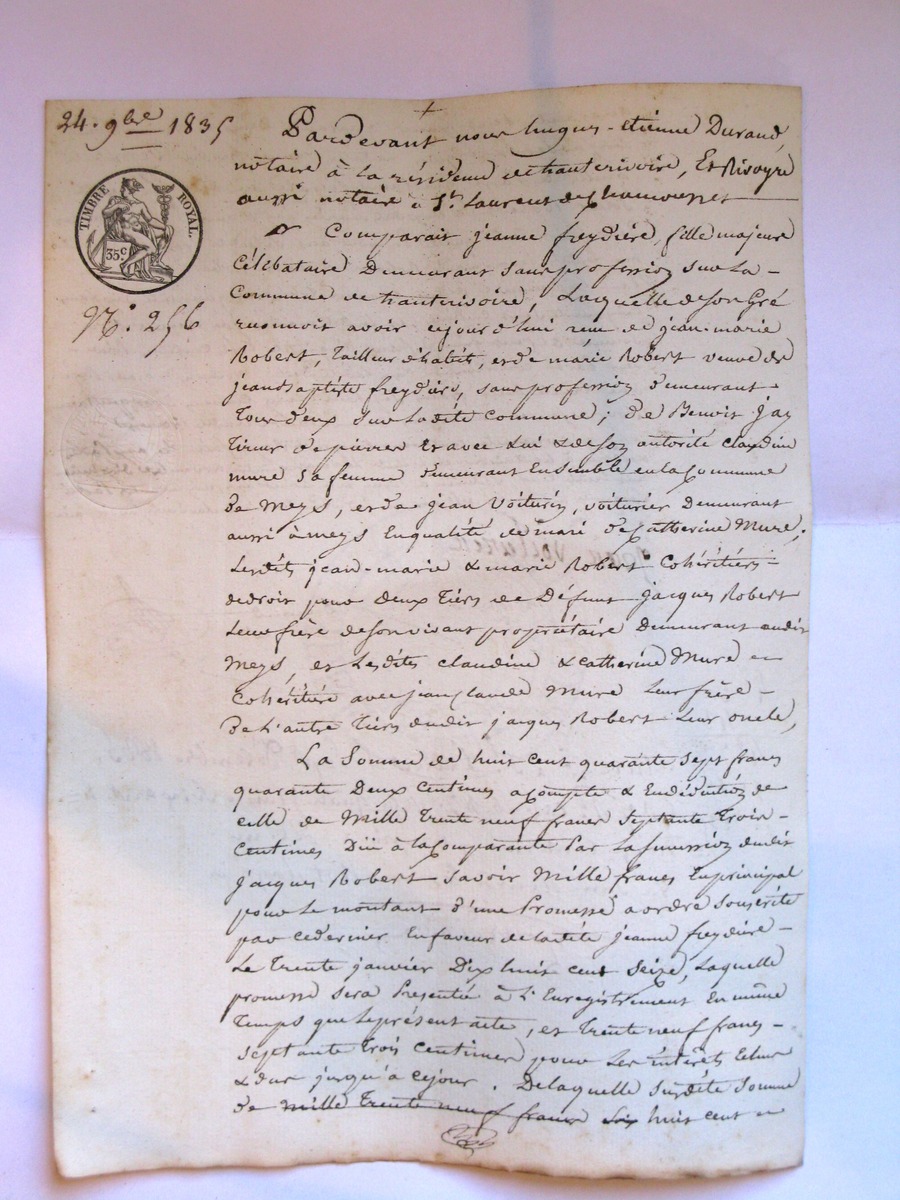 24. 9bre 1835
TIMBRE ROYAL.
35c
N°. 256
Pardevant nous hugues-etienne Durand,
notaire à la résidence de hauterivoire, Et Rivoyre
aussi notaire à St. Laurent de Chamousset
Comparait jeanne freydière, fille majeure
Célébataire Demeurant sans profession sur la
Commune de hauterivoire, Laquelle de son Gré
reconnoit avoir cejourd'hui reçu de jean-marie
Robert, tailleur d'habits, et de marie Robert veuve de
jean baptiste freydière, sans profession demeurant
tous deux sur la dite Commune; de Benoit jay
tireur de pierres et avec lui & de son autorité claudine
mure sa femme demeurant Ensemble en la Commune
de Meys, et de jean Voiturin, voiturier Demeurant
aussi à meys En qualité de mari de Catherine Mure;
Lesdits jean-marie & marie Robert Cohéritiers
de droit pour Deux tiers de Défunt jacques Robert
Leur frère de son vivant propriétaire Demeurant audit
Meys, et Lesdites claudine & catherine Mure
Cohéritière avec jean claude Mure Leur frère
De l'autre tiers dudit jacques Robert Leur oncle,
La Somme de huit cent quarante sept francs
quarante Deux centimes acompte & En déduction de
celle de Mille trente neuf francs septante trois
centimes Dûe à la Comparante Par la succession dudit
jacques Robert savoir Mille francs En principal
pour Le montant d'une Promesse a ordre souscrite
par ce dernier En faveur de ladite jeanne freydière
Le trente janvier Dix huit cent seize, Laquelle
promesse sera Présentée à L'Enregistrement En même
temps que Le présent acte, et trente neuf francs
septante trois centimes pour Les intérêts Echus
& dus jusqu'à ce jour. De laquelle susdite somme
de mille trente neuf francs huit cent